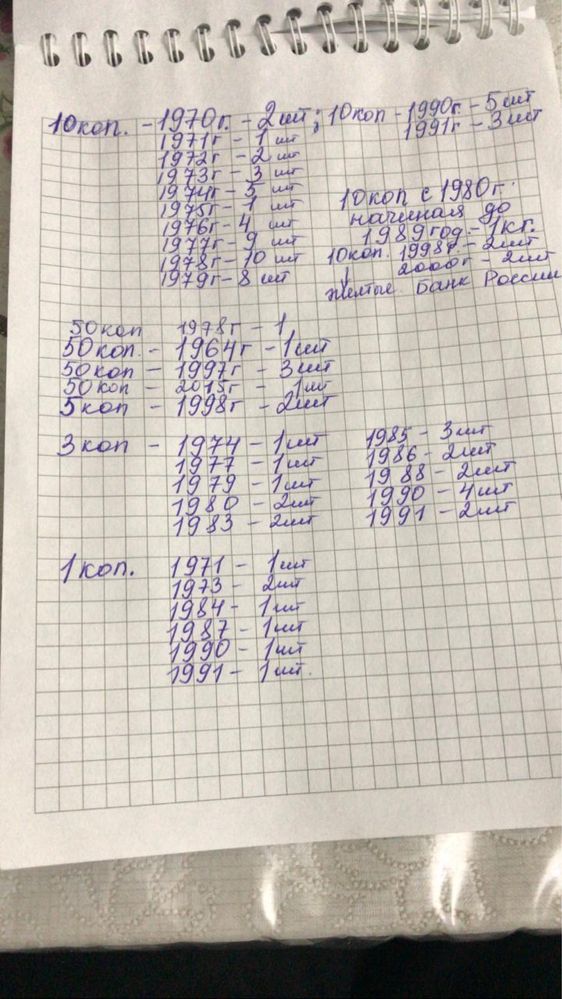 10коп. - 1970г. - 2 шт; 10коп - 1990г. - 5 шт
1971г - 1 шт
1991г - 3 шт
1972г - 2 шт
1973г - 3 шт
1974г - 5 шт
1975г - 1 шт
1976г - 4 шт
1977г - 9 шт
1978г - 10 шт
1979г - 8 шт
10коп с 1980г.
начиная до
1989 год - 1кг.
10коп. 1998г - 2шт
2000г - 2шт
желтые. Банк России
50коп 1978г - 1
50коп. - 1964г - 1шт
50коп - 1997г - 3шт
50коп - 2015г - 1шт
5коп - 1998г - 2шт
3коп - 1974 - 1шт
1977 - 1шт
1979 - 1шт
1980 - 2шт
1983 - 2шт
1985 - 3шт
1986 - 2шт
1988 - 2шт
1990 - 4шт
1991 - 2шт
1коп. 1971 - 1шт
1973 - 2шт
1984 - 1шт
1987 - 1шт
1990 - 1шт
1991 - 1шт.